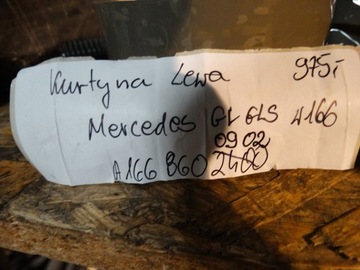 Kurtyna Lewa 975,-
Mercedes GL GLS A166
09 02
A166 860 2400